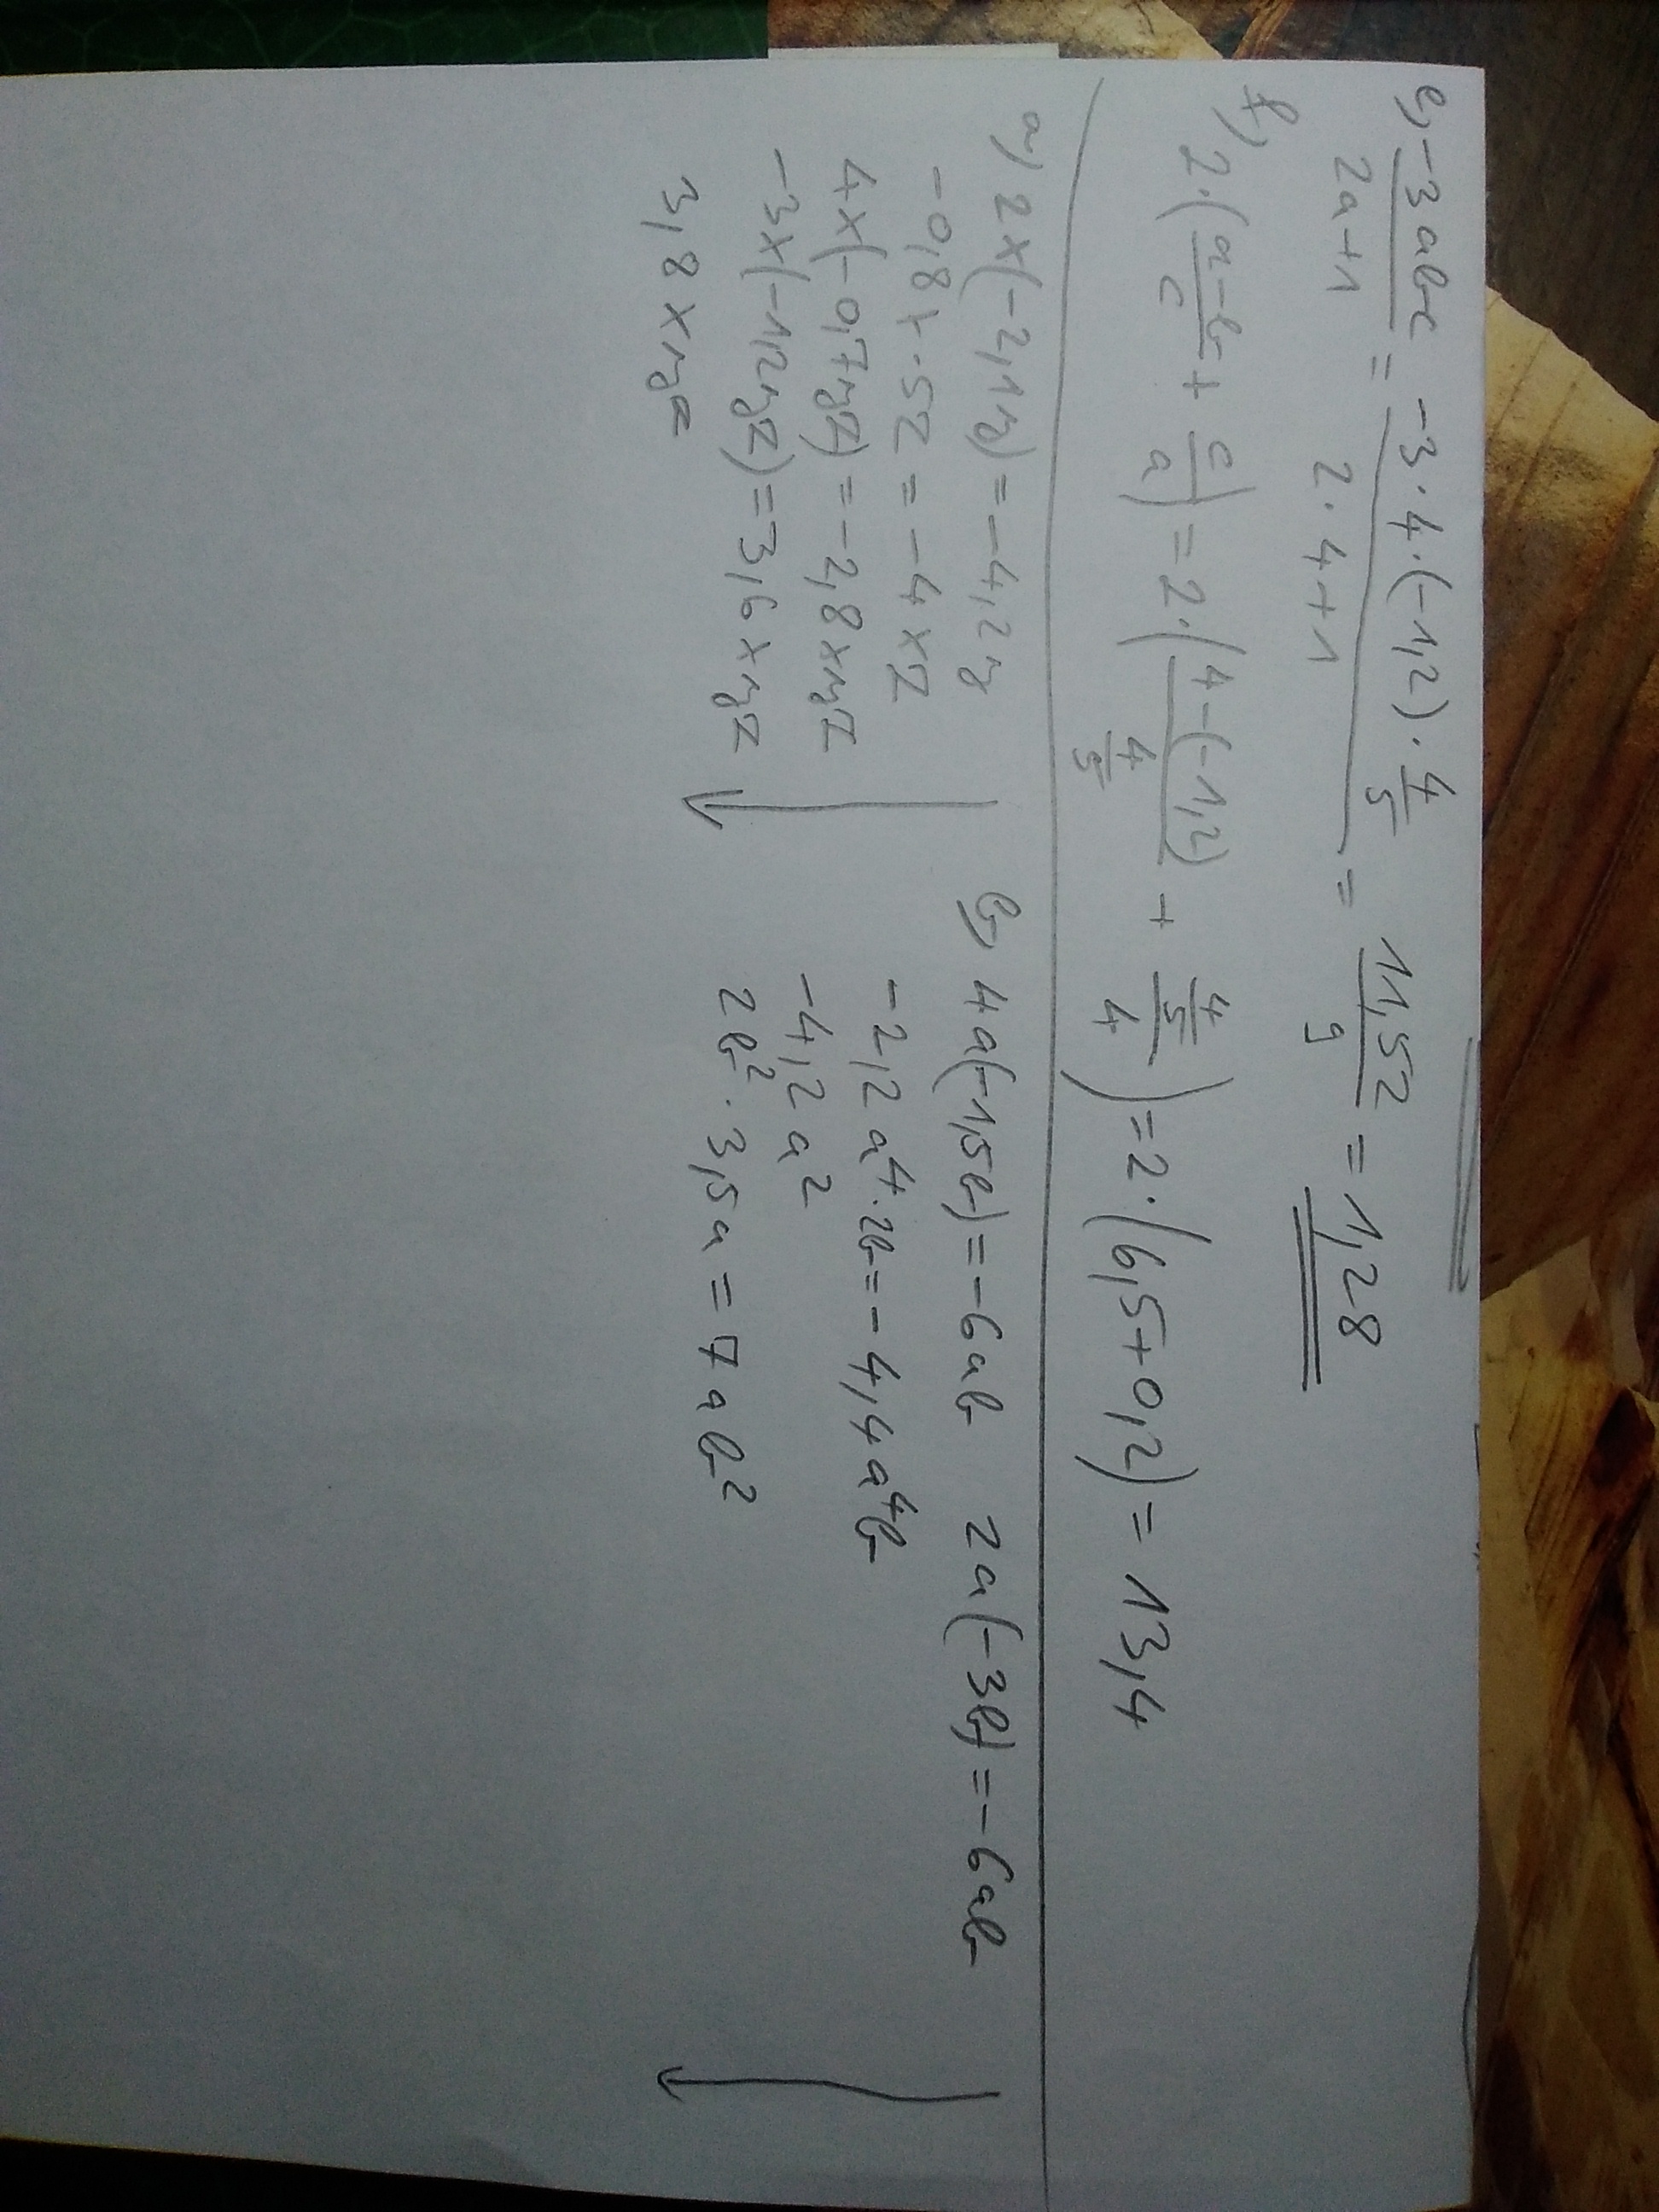 e, -3abc/2a+1 = -3·4·(-1,2)·4/5 / 2·4+1 = 11,52/9 = 1,28
f) 2·(a-b/c + c/a) = 2·(4-(-1,2) / 4/5 + 4/5 / 4) = 2·(6,5+0,2) = 13,4
a) 2x(-2,1y) = -4,2y
-0,8x·5z = -4xz
4x(-0,7yz) = -2,8xyz
-3x(-1,2yz) = 3,6xyz
3,8xyz
b) 4a(-1,5b) = -6ab 2a(-3b) = -6ab
-2,2a⁴·2b = -4,4a⁴b
-4,2a²
2b²·3,5a = 7ab²